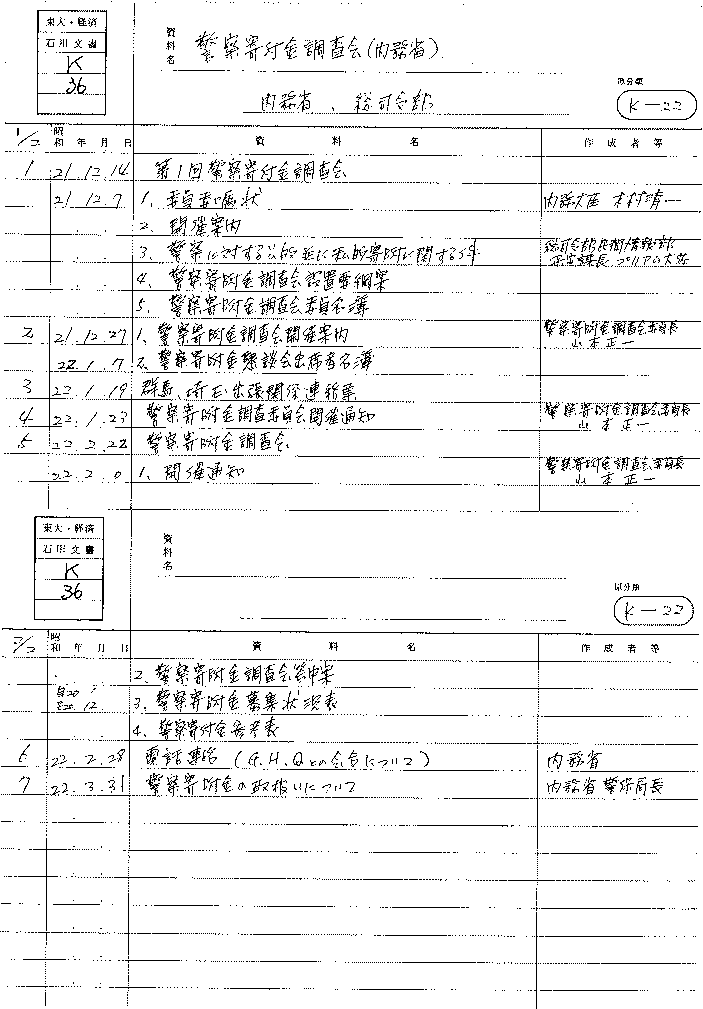 東大・経済
石川文書
K
36
資料名
警察寄付金調査会(内務省)
内務省、総司令部
原分類
K-22
1/2 昭和 年 月 日 資料名 作成者等
1 21.12.14 第1回警察寄付金調査会
21.12.7 1、委員委嘱状 内務大臣
2、開催案内
3、警察に対する公的並に私的寄附に関する件 総司令部民間情報部
公安課長 プリアム大佐
4、警察寄附金調査会設置要綱案
5、警察寄附金調査会委員名簿
2 21.12.27 1、警察寄附金調査会開催案内 警察寄附金調査会委員長
山本正一
22.1.7 2、警察寄附金懇談会出席者名簿
3 22.1.19 群馬、埼玉出張関係連絡票
4 22.1.23 警察寄附金調査委員会開催通知 警察寄附金調査会委員長
山本正一
5 22.2.22 警察寄附金調査会
22.2.0 1、開催通知 警察寄附金調査会委員長
山本正一
東大・経済
石川文書
K
36
資料名
原分類
K-22
2/2 昭和 年 月 日 資料名 作成者等
2、警察寄附金調査会答申案
自20
至20.12 3、警察寄附金募集状況表
4、警察寄付金参考表
6 22.2.28 電話連絡(G.H.Qとの会見について) 内務省
7 22.3.31 警察寄附金の取扱いについて 内務省警保局長